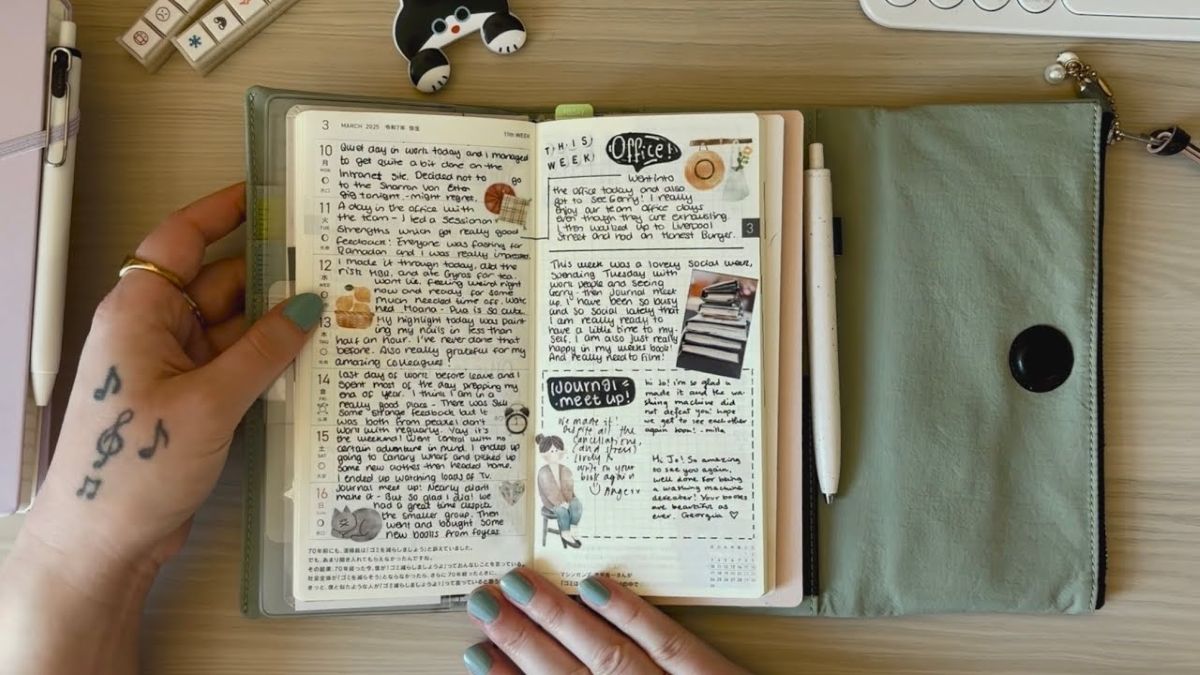 3 MARCH 2025 令和7年 弥生
11th WEEK
10
月
MON
Quiet day in work today and I managed
to get quite a bit done on the
Intranet site. Decided not to go
to the Sharron Van Etten
gig tonight - might regret.
11
火
TUE
A day in the office with
the team - I led a session on
Strengths which got really good
feedback! Everyone was fasting for
Ramadan and I was really impressed.
12
水
WED
I made it through today, did the
risk MBU, and ate Gyros for tea.
Went live, feeling weird right
now and ready for some
much needed time off. Watc
hed Moana - Pua is so cute.
13
木
THU
My highlight today was paint
ing my nails in less than
half an hour. I've never done that
before. Also really grateful for my
amazing colleagues!
14
金
FRI
Last day of work before leave and I
spent most of the day prepping my
end of year. I think I am in a
really good place - There was still
some strange feedback but it
was both from people I don't
work with regularly. Yay it's
15
土
SAT
the weekend! Went central with no
certain adventure in mind. I ended up
going to Canary Wharf and picked up
some new clothes then headed home.
I ended up watching loads of TV.
16
日
SUN
Journal meet up! Nearly didn't
make it - But so glad I did! We
had a great time despite
the smaller group. Then
went and bought some
new books from Foyles
70年前にも、
でも、あまり聞き入れてもらえなかったんですね。
THIS
WEEK
Office!
Went into
the office today and also
got to see Gerry! I really
enjoy our team office days
even though they are exhausting.
I then walked up to Liverpool
Street and had an Honest Burger.
3
This week was a lovely social week,
spending Tuesday with
work people and seeing
Gerry - then Journal meet
up. I have been so busy
and so social lately that
I am really ready to
have a little time to my-
self. I am also just really
happy in my weeks book!
And really need to film!
Journal
meet up!
We made it!
Despite all the
cancellations,
(and stress)
lovely to
write in your
book again
Ange xx
hi Jo! i'm so glad u
made it and the wa-
shing machine did
not defeat you! hope
we get to see each other
again soon! - milla
Hi Jo! So amazing
to see you again,
well done for being
a washing machine
defeater! Your books
are beautiful as
ever. Georgia ♡